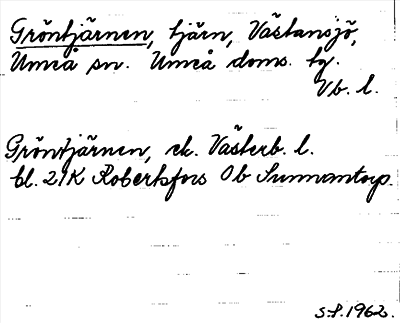 Gröntjärnen, tjärn, Västansjö,
Umeå sn. Umeå doms. tg.
Vb. l.
Gröntjärnen, ek. Västerb. l.
bl. 21K Robertsfors Ob Sunnantorp.
S.F. 1962.